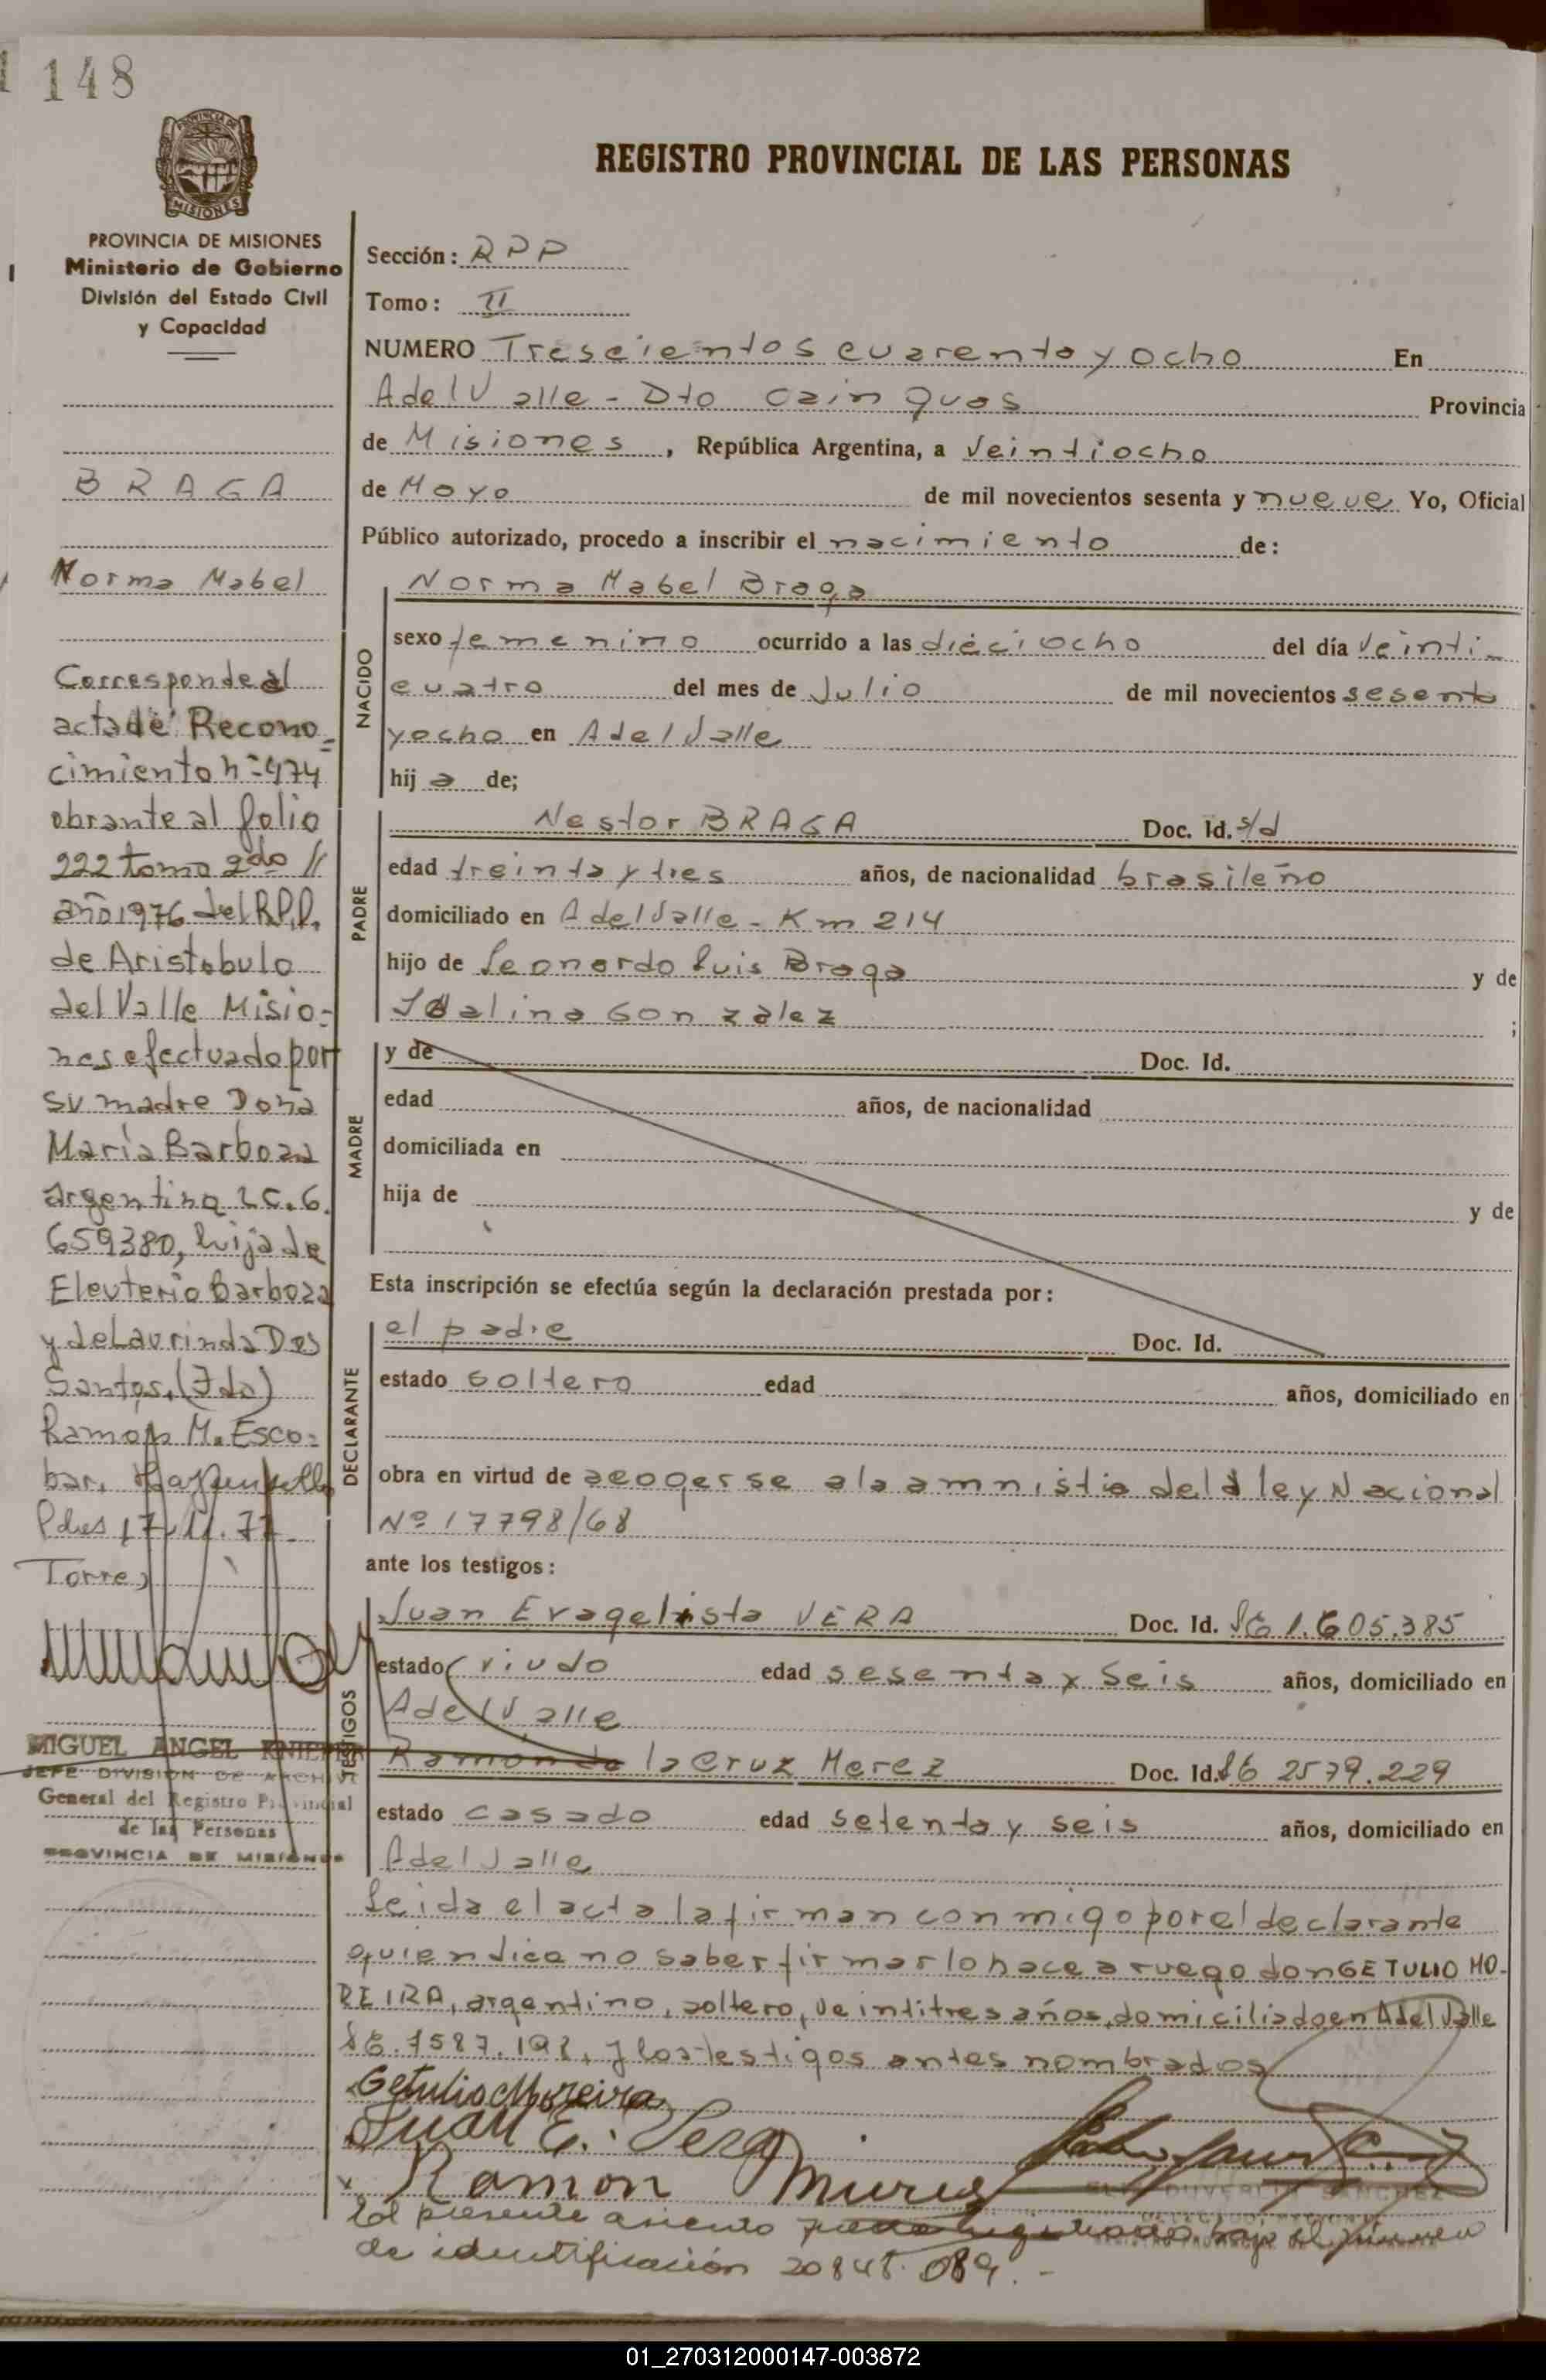 148
PROVINCIA DE MISIONES
Ministerio de Gobierno
División del Estado Civil
y Capacidad
BRAGA
Norma Mabel
Corresponde al
acta de Recono
cimiento nº 474
obrante al folio
222 tomo 2do //
año 1976 del R.P.P.
de Aristobulo
del Valle Misio=
nes efectuado por
su madre Doña
María Barboza
argentina LC. 6.
659380, hija de
Eleuterio Barboza
y de Laurinda Dos
Santos, (Fdo)
Ramón M. Esco=
bar.
Pdas 17.11.77
Torres
MIGUEL ANGEL
JEFE DIVISION DE ARCHIVO
General del Registro Provincial
de las Personas
PROVINCIA DE MISIONES
REGISTRO PROVINCIAL DE LAS PERSONAS
Sección: RPP
Tomo: II
NUMERO Trescientos cuarenta y ocho En
A del Valle - Dto Cainguas Provincia
de Misiones, República Argentina, a Veintiocho
de Mayo de mil novecientos sesenta y nueve Yo, Oficial
Público autorizado, procedo a inscribir el nacimiento de:
NACIDO
Norma Mabel Braga
sexo femenino ocurrido a las dieciocho del día Veinti-
cuatro del mes de Julio de mil novecientos sesenta
y ocho en A del Valle
hij a de;
PADRE
Nestor BRAGA Doc. Id. s/d
edad treinta y tres años, de nacionalidad brasileño
domiciliado en A del Valle - Km 214
hijo de Leonardo Luis Braga y de
Idalina Gonzalez ;
MADRE
y de Doc. Id.
edad años, de nacionalidad
domiciliada en
hija de y de
Esta inscripción se efectúa según la declaración prestada por:
DECLARANTE
el padre Doc. Id.
estado soltero edad años, domiciliado en
obra en virtud de acogerse a la amnistia de la ley Nacional
Nº 17798/68
ante los testigos:
TESTIGOS
Juan Evagelista VERA Doc. Id. 1.605.385
estado viudo edad sesenta y seis años, domiciliado en
A del Valle
Ramon de la Cruz Merez Doc. Id. 2579.229
estado casado edad setenta y seis años, domiciliado en
A del Valle
Leida el acta la firman conmigo por el declarante
quien dice no saber firmar lo hace a ruego don GETULIO MO-
REIRA, argentino, soltero, veintitres años, domiciliado en A del Valle
y los testigos antes nombrados
Getulio Moreira
Juan E. Vera
Ramon
DUVERLIS SANCHEZ
El presente asiento bajo el número
de identificación 20848.089.-
01_270312000147-003872